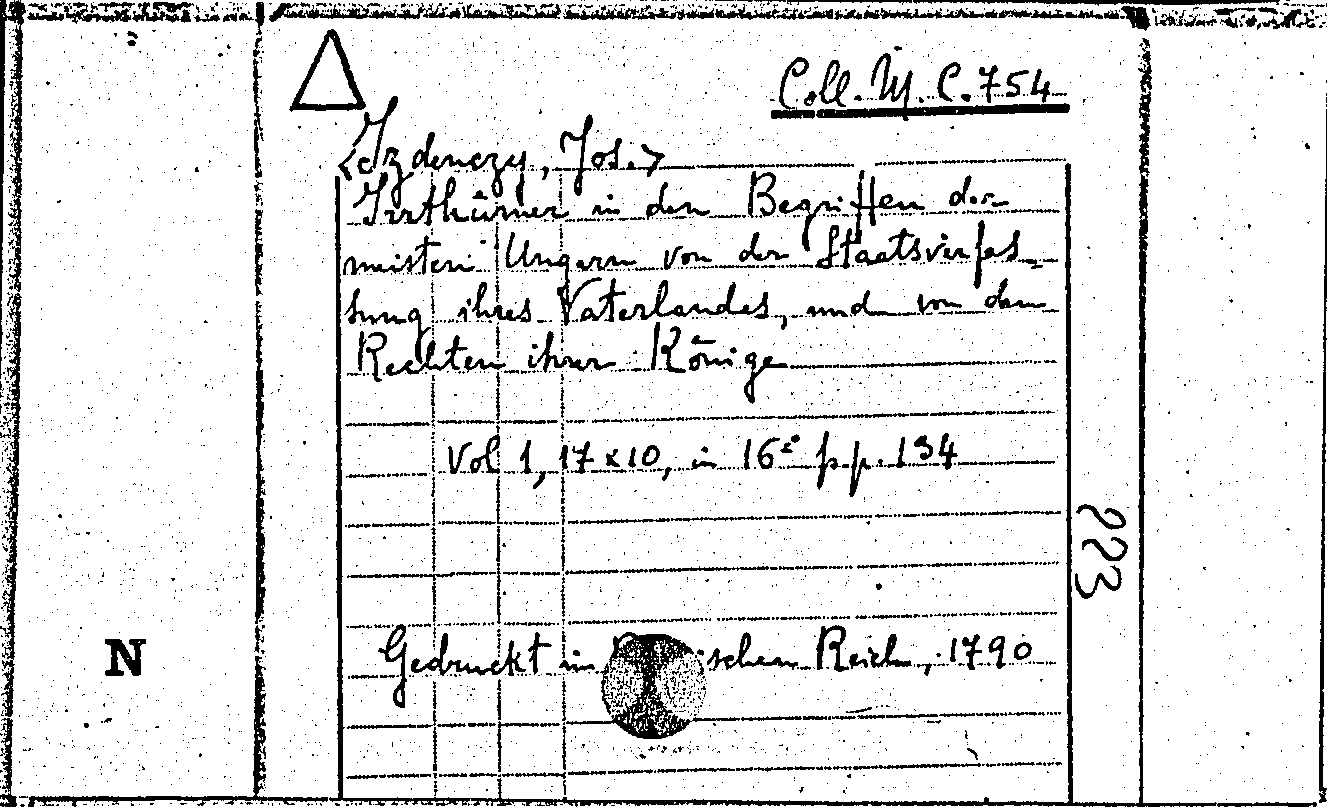 Coll. M. C. 754
<Izdenczy, Jos.>
Irrthümer in den Begriffen der
meisten Ungarn von der Staatsverfas-
sung ihres Vaterlandes, und von den
Rechten ihrer Könige
Vol 1, 17x10, in 16º pp. 134
223
Gedruckt im Reich, 1790
N